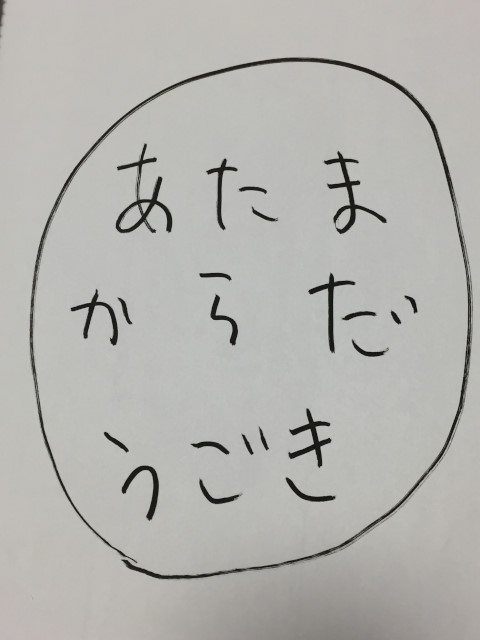 あたま
からだ
うごき